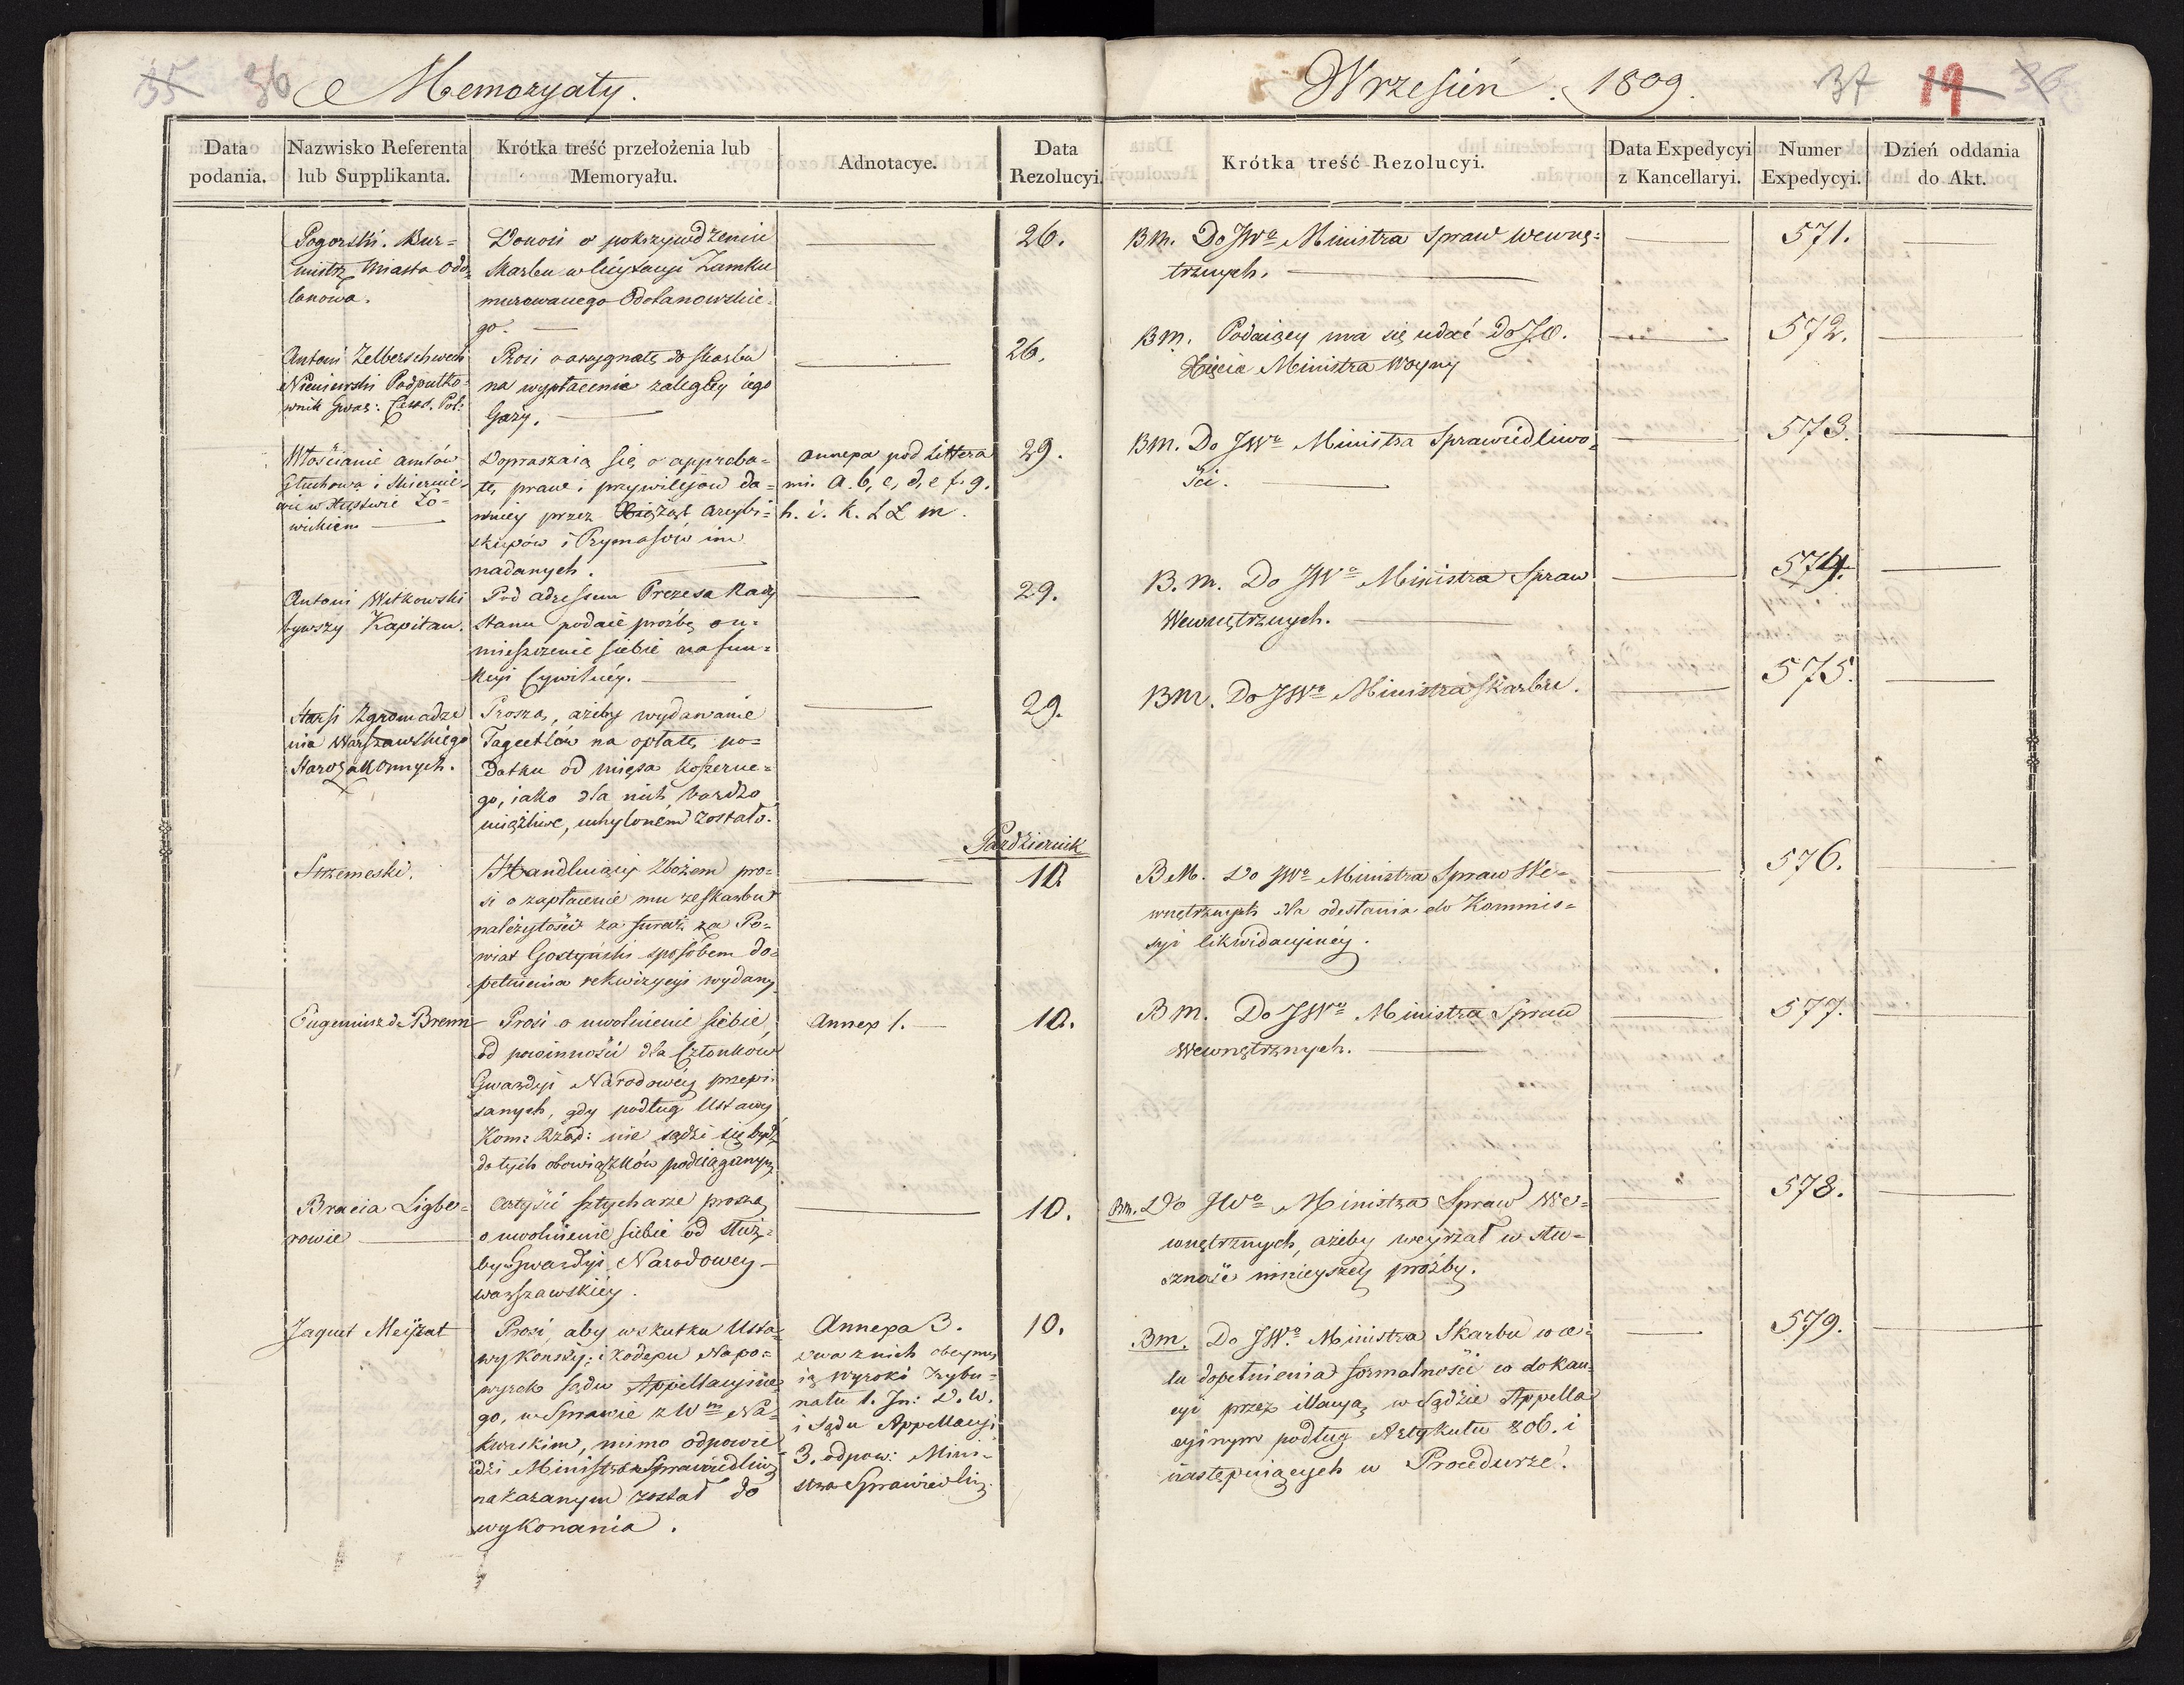 35 36 Memoryały.
Wrzesień. 1809. 37 19 36
Data podania.
Nazwisko Referenta lub Supplikanta.
Krótka treść przełożenia lub Memoryału.
Adnotacye.
Data Rezolucyi.
Krótka treść Rezolucyi.
Data Expedycyi z Kancellaryi.
Numer Expedycyi.
Dzień oddania do Akt.
Pogorski. Bur=
mistrz Miasta Odo=
lanowa.
Donosi o pokrzywdzeniu
Skarbu w licytacyi Zamku
murowanego Odolanowskie=
go.
26.
BM. Do JWo Ministra Spraw Wewnę=
trznych.
571.
Antoni Zelberschwech
Nieniewski Podpułko=
wnik Gwar: Pol:
Prosi o assygnatę do Skarbu
na wypłacenie zaległey iego
Gaży.
26.
BM. Podaiący ma się udać do JO.
Xięcia Ministra Woyny
572.
Włościanie amtów
Głuchowa i Skiernie=
wic w Xięstwie Ło=
wickiem
Dopraszaią się o approba=
tę praw i przywilejów da=
wniey przez Xiążąt Arcybi=
skupów i Prymasów im
nadanych.
Annexa pod Littera
mi. a. b, c, d, e f. g.
h. i. k. l ł m.
29.
BM. Do JWo Ministra Sprawiedliwo=
ści.
573.
Antoni Witkowski
bywszy Kapitan.
Pod adressem Prezesa Rady
Stanu podaie prośbę o u=
mieszczenie siebie na fun=
kcyi Cywilnéy.
29.
B.M. Do JWo Ministra Spraw
Wewnętrznych.
574.
Starsi Zgromadze
nia Warszawskiego
Starozakonnych.
Proszą, ażeby wydawanie
Tagcetlów na opłatę po=
datku od mięsa koszerne=
go, iako dla nich bardzo
uciążliwe, uchylonem zostało.
29.
BM. Do JWo Ministra Skarbu.
575.
Pazdziernik
Strzemeski.
Handluiący Zbożem pro=
si o zapłacenie mu ze Skarbu
należytości za furaż za Po=
wiat Gostyński sposobem do=
pełnienia rekwizycyi wydany
10
B.M. Do JWo Ministra Spraw We=
wnętrznych dla odesłania do Kommis=
syi likwidacyinéy.
576.
Eugeniusz de Brenn
Prosi o uwolnienie siebie
od powinności dla Członków
Gwardyi Narodowéy przepi=
sanych, gdy podług Ustawy
Kom: Rząd: nie sądzi się bydź
do tych obowiązków podciąganym.
Annex 1.
10.
BM. Do JWo Ministra Spraw
Wewnętrznych.
577.
Bracia Ligbe=
rowie
Artyści sztycharze proszą
o uwolnienie siebie od służ=
by Gwardyi Narodowey
warszawskiéy.
10.
BM. Do JWo Ministra Spraw We=
wnętrznych, ażeby weyrzał w słu=
szność ninieyszéy prośby.
578.
Jaquet Meyzat
Prosi, aby w skutku Usta=
wy Konsty: i Kodexu Napo=
wyrok Sądu Appellacyine=
go, w Sprawie z Wm Na=
kwaskim, mimo odpowie
dzi Ministra Sprawiedliw
nakazanym został do
wykonania.
Annexa 3.
dwa z nich obeymu
ią wyroki Trybu=
nału 1. In: D. W.
i Sądu Appellacyi
3. odpow: Mini=
stra Sprawiedliw.
10.
BM. Do JWo Ministra Skarbu w ce=
lu dopełnienia formalności
przez w Sądzie Appella
cyinym podług Artykułu 806. i
następuiących w Procedurze.
579.